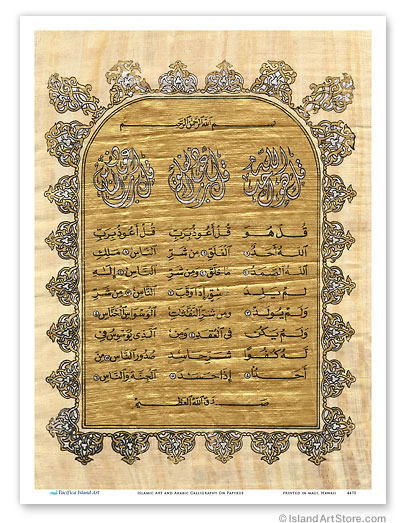 بسم الله الرحمن الرحيم
قل هو الله أحد
قل أعوذ برب الفلق
قل أعوذ برب الناس
قُلْ هُوَ
اللَّهُ أَحَدٌ ①
اللَّهُ الصَّمَدُ ②
لَمْ يَلِدْ
وَلَمْ يُولَدْ ③
وَلَمْ يَكُن
لَّهُ كُفُوًا
أَحَدٌ ④
قُلْ أَعُوذُ بِرَبِّ
الْفَلَقِ ① مِن شَرِّ
مَا خَلَقَ ② وَمِن شَرِّ
إِذَا وَقَبَ ③
وَمِن شَرِّ النَّفَّثَتِ
فِي الْعُقَدِ ④ وَمِن
شَرِّ حَاسِدٍ
إِذَا حَسَدَ ⑤
قُلْ أَعُوذُ بِرَبِّ
النَّاسِ ① مَلِكِ
النَّاسِ ② إِلَهِ
النَّاسِ ③ مِن شَرِّ
الْوَسْوَاسِ الْخَنَّاسِ ④
الَّذِي يُوَسْوِسُ فِي
صُدُورِ النَّاسِ ⑤ مِنَ
الْجِنَّةِ وَالنَّاسِ ⑥
صدق الله العظيم
Pacifica Island Art
Islamic Art and Arabic Calligraphy On Papyrus
Printed in Maui, Hawaii
4475
©IslandArtStore.com